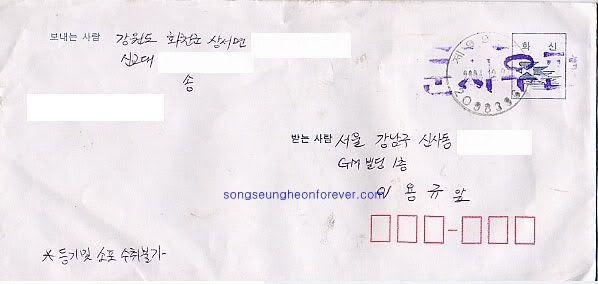 보내는 사람 강원도 화천군 상서면
신교대
송
화 신
받는 사람 서울 강남구 신사동
GM 빌딩 1층
이 용 규 앞
songseungheonforever.com
* 등기및 소포 수취불가-